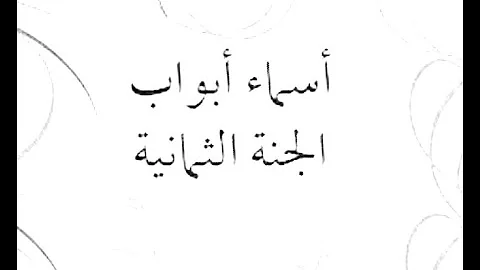 أسماء أبواب
الجنة الثمانية